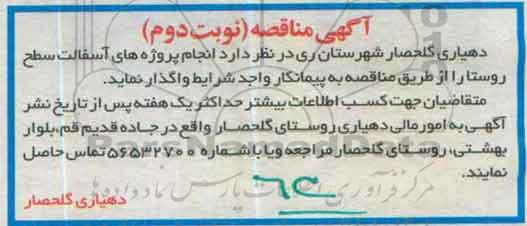 آگهی مناقصه (نوبت دوم)
دهیاری گلحصار شهرستان ری در نظر دارد انجام پروژه های آسفالت سطح
روستا را از طریق مناقصه به پیمانکار واجد شرایط واگذار نماید.
متقاضیان جهت کسب اطلاعات بیشتر حداکثر یک هفته پس از تاریخ نشر
آگهی به امور مالی دهیاری روستای گلحصار واقع در جاده قدیم قم، بلوار
بهشتی، روستای گلحصار مراجعه و یا با شماره ۵۶۵۳۲۷۰۰ تماس حاصل
نمایند.
مرکز فرآوری اطلاعات پارس نماد داده ها
دهیاری گلحصار